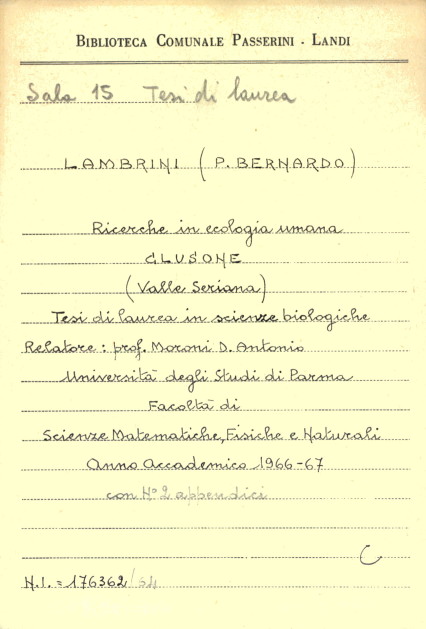 BIBLIOTECA COMUNALE PASSERINI - LANDI
Sala 15 Tesi di laurea
LAMBRINI (P. BERNARDO)
Ricerche in ecologia umana
CLUSONE
(Valle Seriana)
Tesi di laurea in scienze biologiche
Relatore: prof. Moroni D. Antonio
Università degli Studi di Parma
Facoltà di
Scienze Matematiche, Fisiche e Naturali
Anno Accademico 1966-67
con No 2 appendici
C
N.I. = 176362/54